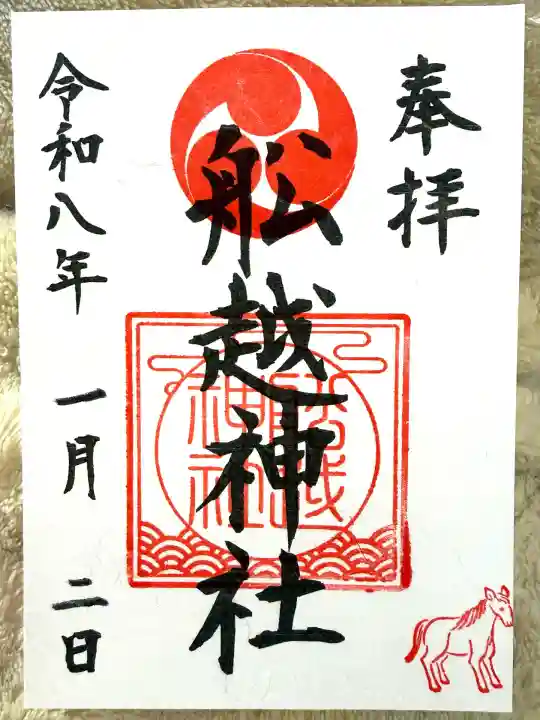 奉拝
舩越神社
令和八年 一月 二日